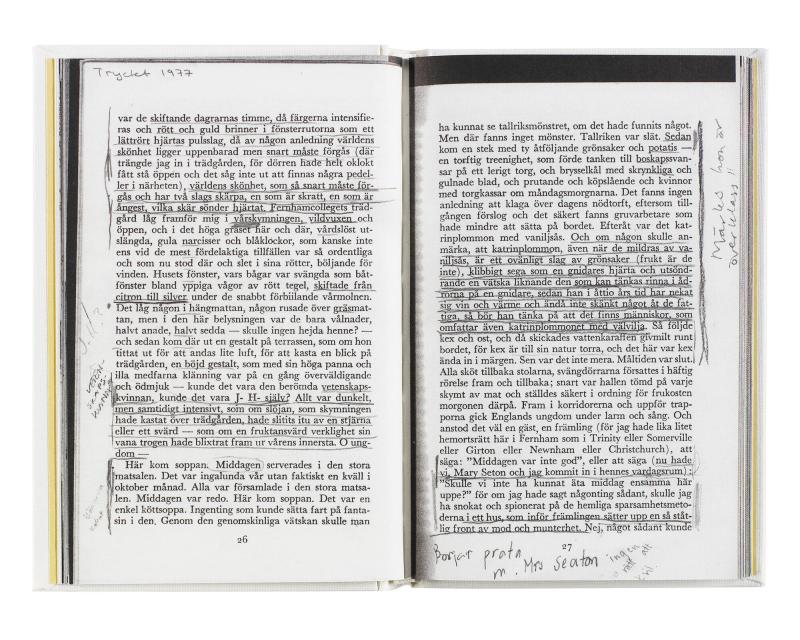 Tryckt 1977
var de skiftande dagrarnas timme, då färgerna intensifie-
ras och rött och guld brinner i fönsterrutorna som ett
lättrört hjärtas pulsslag, då av någon anledning världens
skönhet ligger uppenbarad men snart måste förgås (där
trängde jag in i trädgården, för dörren hade helt oklokt
fått stå öppen och det såg inte ut att finnas några pedel-
ler i närheten), världens skönhet, som så snart måste för-
gås och har två slags skärpa, en som är skratt, en som är
ångest, vilka skär sönder hjärtat. Fernhamcollegets träd-
gård låg framför mig i vårskymningen, vildvuxen och
öppen, och i det höga gräset här och där, vårdslöst ut-
slängda, gula narcisser och blåklockor, som kanske inte
ens vid de mest fördelaktiga tillfällen var så ordentliga
och som nu stod där och slet i sina rötter, böljande för
vinden. Husets fönster, vars bågar var svängda som båt-
fönster bland yppiga vågor av rött tegel, skiftade från
citron till silver under de snabbt förbiilande vårmolnen.
Det låg någon i hängmattan, någon rusade över gräsmat-
tan, men i den här belysningen var de bara vålnader,
halvt anade, halvt sedda — skulle ingen hejda henne? —
och sedan kom där ut en gestalt på terrassen, som om hon
tittat ut för att andas lite luft, för att kasta en blick på
trädgården, en böjd gestalt, som med sin höga panna och
illa medfarna klänning var på en gång överväldigande
och ödmjuk — kunde det vara den berömda vetenskaps-
kvinnan, kunde det vara J- H- själv? Allt var dunkelt,
men samtidigt intensivt, som om slöjan, som skymningen
hade kastat över trädgården, hade slitits itu av en stjärna
eller ett svärd — som om en fruktansvärd verklighet sin
vana trogen hade blixtrat fram ur vårens innersta. O ung-
dom —
Här kom soppan. Middagen serverades i den stora
matsalen. Det var ingalunda vår utan faktiskt en kväll i
oktober månad. Alla var församlade i den stora matsa-
len. Middagen var redo. Här kom soppan. Det var en
enkel köttsoppa. Ingenting som kunde sätta fart på fanta-
sin i den. Genom den genomskinliga vätskan skulle man
26
ha kunnat se tallriksmönstret, om det hade funnits något.
Men där fanns inget mönster. Tallriken var slät. Sedan
kom en stek med ty åtföljande grönsaker och potatis —
en torftig treenighet, som förde tanken till boskapssvan-
sar på ett lerigt torg, och brysselkål med skrynkliga och
gulnade blad, och prutande och köpslående och kvinnor
med torgkassar om måndagsmorgnarna. Det fanns ingen
anledning att klaga över dagens nödtorft, eftersom till-
gången förslog och det säkert fanns gruvarbetare som
hade mindre att sätta på bordet. Efteråt var det kat-
rinplommon med vaniljsås. Och om någon skulle an-
märka, att katrinplommon, även när de mildras av va-
niljsås, är ett ovänligt slag av grönsaker (frukt är de
inte), klibbigt sega som en gnidares hjärta och utsönd-
rande en vätska liknande den som kan tänkas rinna i åd-
rorna på en gnidare, sedan han i åttio års tid har nekat
sig vin och värme och ändå inte skänkt något åt de fat-
tiga, så bör han tänka på att det finns människor, som
omfattar även katrinplommonet med välvilja. Så följde
kex och ost, och då skickades vattenkaraffen givmilt runt
bordet, för kex är till sin natur torra, och det här var kex
ända in i märgen. Sen var det inte mera. Måltiden var slut.
Alla sköt tillbaka stolarna, svängdörrarna försattes i häftig
rörelse fram och tillbaka; snart var hallen tömd på varje
skymt av mat och ställdes säkert i ordning för frukosten
morgonen därpå. Fram i korridorerna och uppför trap-
porna gick Englands ungdom under larm och sång. Och
anstod det väl en gäst, en främling (för jag hade lika litet
hemortsrätt här i Fernham som i Trinity eller Somerville
eller Girton eller Newnham eller Christchurch), att
säga: "Middagen var inte god", eller att säga (nu hade
vi, Mary Seton och jag kommit in i hennes vardagsrum):
"Skulle vi inte ha kunnat äta middag ensamma här
uppe?" för om jag hade sagt någonting sådant, skulle jag
ha snokat och spionerat på de hemliga sparsamhetsmeto-
derna i ett hus, som inför främlingen sätter upp en så ståt-
lig front av mod och munterhet. Nej, något sådant kunde
27
Märks hon är
överklass!!
Börjar prata
m. Mrs Seaton